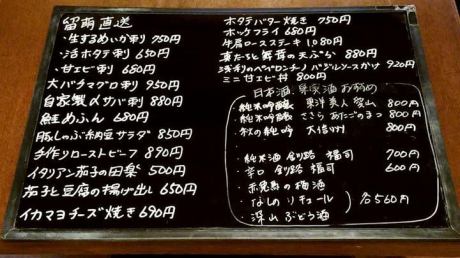 留萌直送
・生するめいか刺 750円
・活ホタテ刺 650円
・甘エビ刺 680円
大バチマグロ刺 950円
自家製〆サバ刺 880円
鮭めふん 680円
豚しゃぶ納豆サラダ 850円
手作りローストビーフ 890円
イタリアン茄子の田楽 500円
茄子と豆腐の揚げ出し 650円
イカマヨチーズ焼き 690円
ホタテバター焼き 750円
ホッケフライ 680円
牛肩ロースステーキ 1,080円
真だちと舞茸の天ぷら 880円
浅利のペペロンチーノ バジルソースがけ 920円
ミニ甘エビ丼 800円
日本酒、果実酒 おすすめ
・純米吟醸 東洋美人 800円
・純米吟醸 ささら あたごのまつ 800円
・秋の純吟 大信州 800円
・純米酒 釧路 福司 700円
・辛口 釧路 福司 600円
・赤兎馬の梅酒
・なしのリキュール 各560円
・深山ぶどう酒